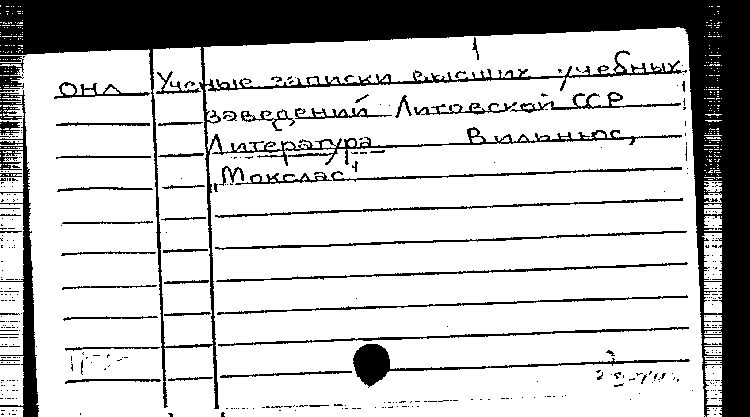 1
ОНЛ Ученые записки высших учебных
заведений Литовской ССР
Литература Вильнюс,
„Мокслас“